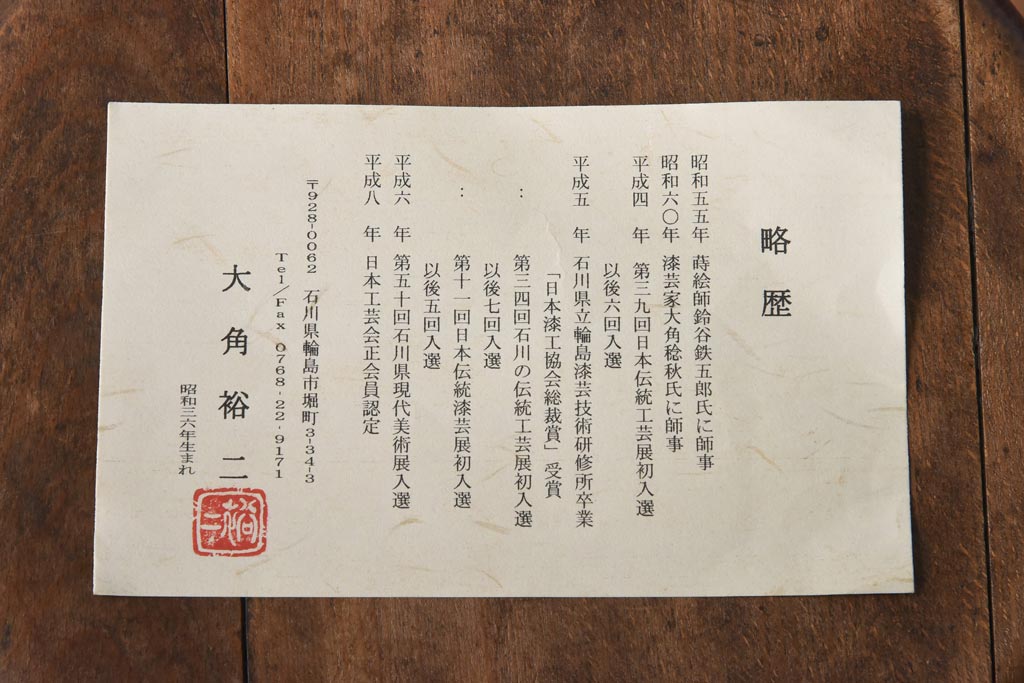 略歴
昭和五五年 蒔絵師鈴谷鉄五郎氏に師事
昭和六〇年 漆芸家大角稔秋氏に師事
平成四 年 第三九回日本伝統工芸展初入選
以後六回入選
平成五 年 石川県立輪島漆芸技術研修所卒業
「日本漆工協会総裁賞」受賞
： 第三四回石川の伝統工芸展初入選
以後七回入選
： 第十一回日本伝統漆芸展初入選
以後五回入選
平成六 年 第五十回石川県現代美術展入選
平成八 年 日本工芸会正会員認定
〒928-0062 石川県輪島市堀町3-34-3
Tel/Fax 0768-22-9171
大角裕二
昭和三六年生まれ
裕二